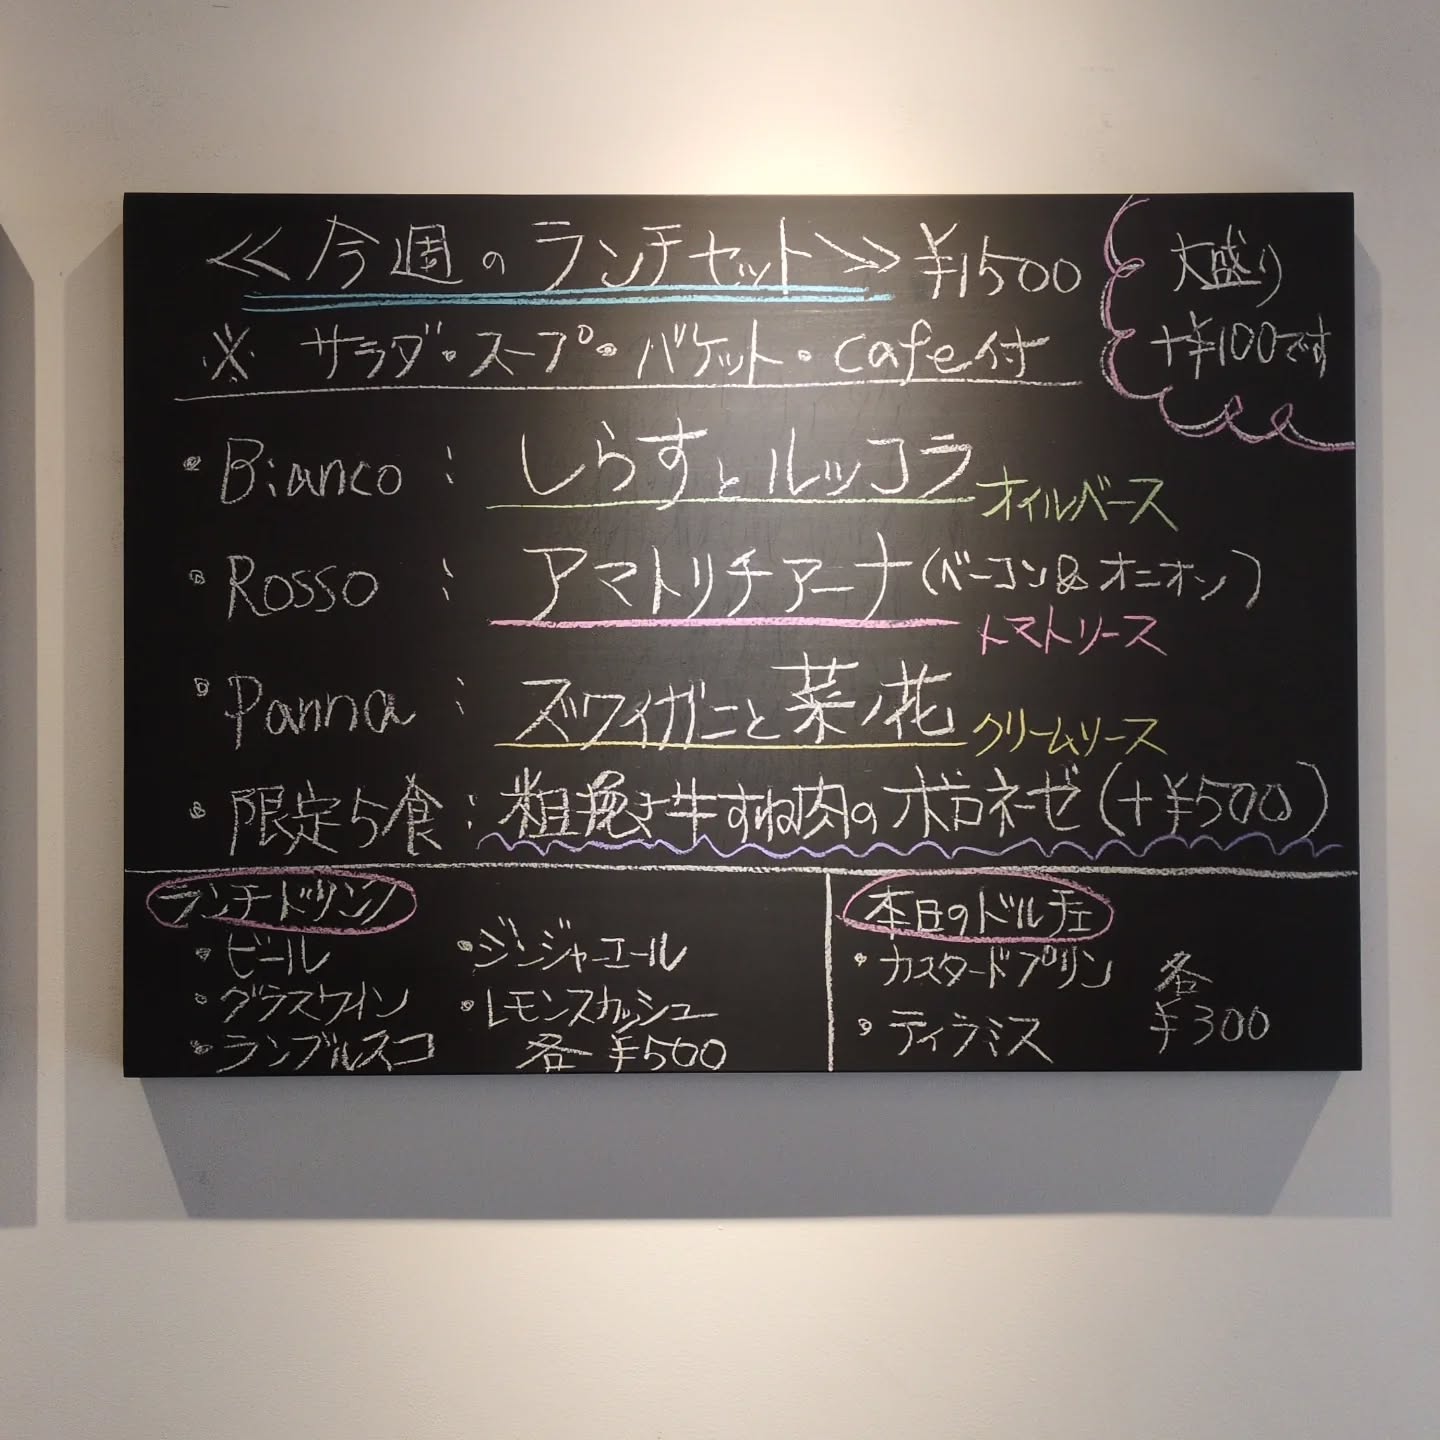 ≪今週のランチセット≫ ¥1500
※ サラダ・スープ・バケット・cafe付
大盛り
+¥100です
・Bianco : しらすとルッコラ オイルベース
・Rosso : アマトリチアーナ(ベーコン&オニオン)
トマトソース
・Panna : ズワイガニと菜ノ花 クリームソース
・限定5食 : 粗挽き牛すね肉のボロネーゼ(+¥500)
ランチドリンク
・ビール ・ジンジャーエール
・グラスワイン ・レモンスカッシュ
・ランブルスコ 各 ¥500
本日のドルチェ
・カスタードプリン 各
・ティラミス ¥300